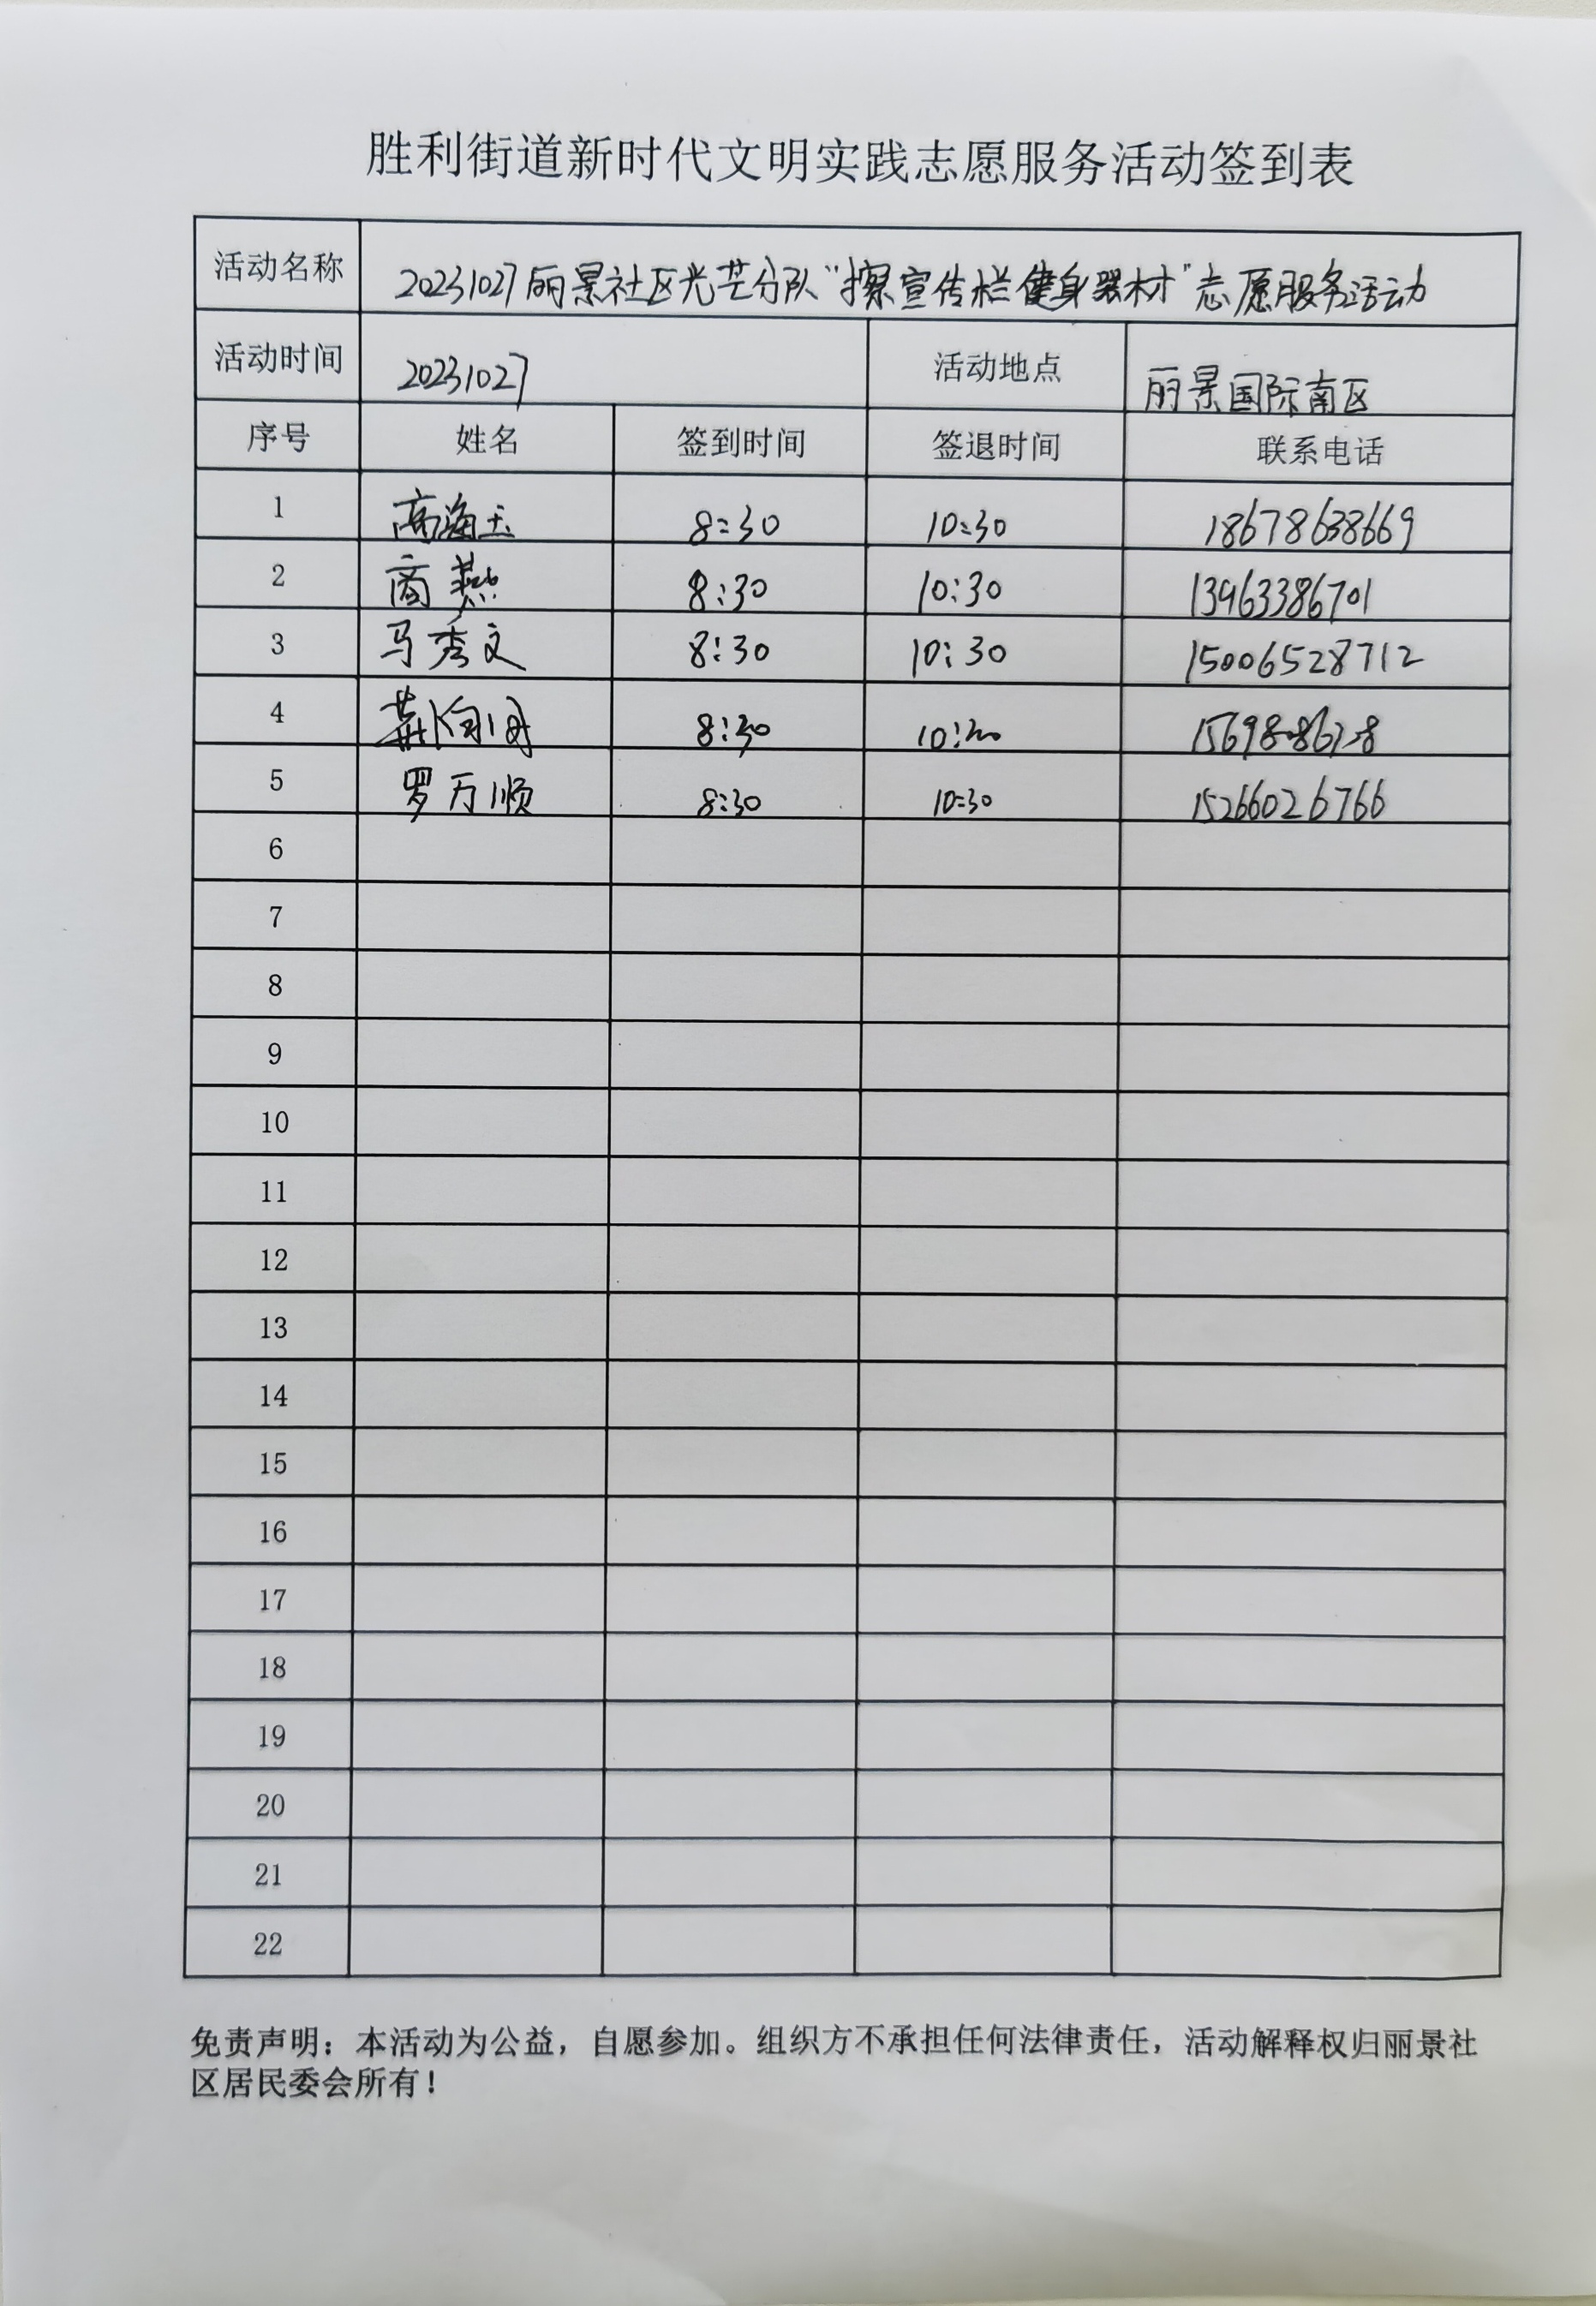 胜利街道新时代文明实践志愿服务活动签到表
活动名称 20231027丽景社区光芒分队“擦宣传栏健身器材”志愿服务活动
活动时间 20231027 活动地点 丽景国际南区
序号 姓名 签到时间 签退时间 联系电话
1 高海玉 8:30 10:30 18678638669
2 商燕 8:30 10:30 13963386701
3 马秀文 8:30 10:30 15006528712
4 8:30 10:30
5 罗万顺 8:30 10:30 15266026766
6
7
8
9
10
11
12
13
14
15
16
17
18
19
20
21
22
免责声明：本活动为公益，自愿参加。组织方不承担任何法律责任，活动解释权归丽景社
区居民委会所有！